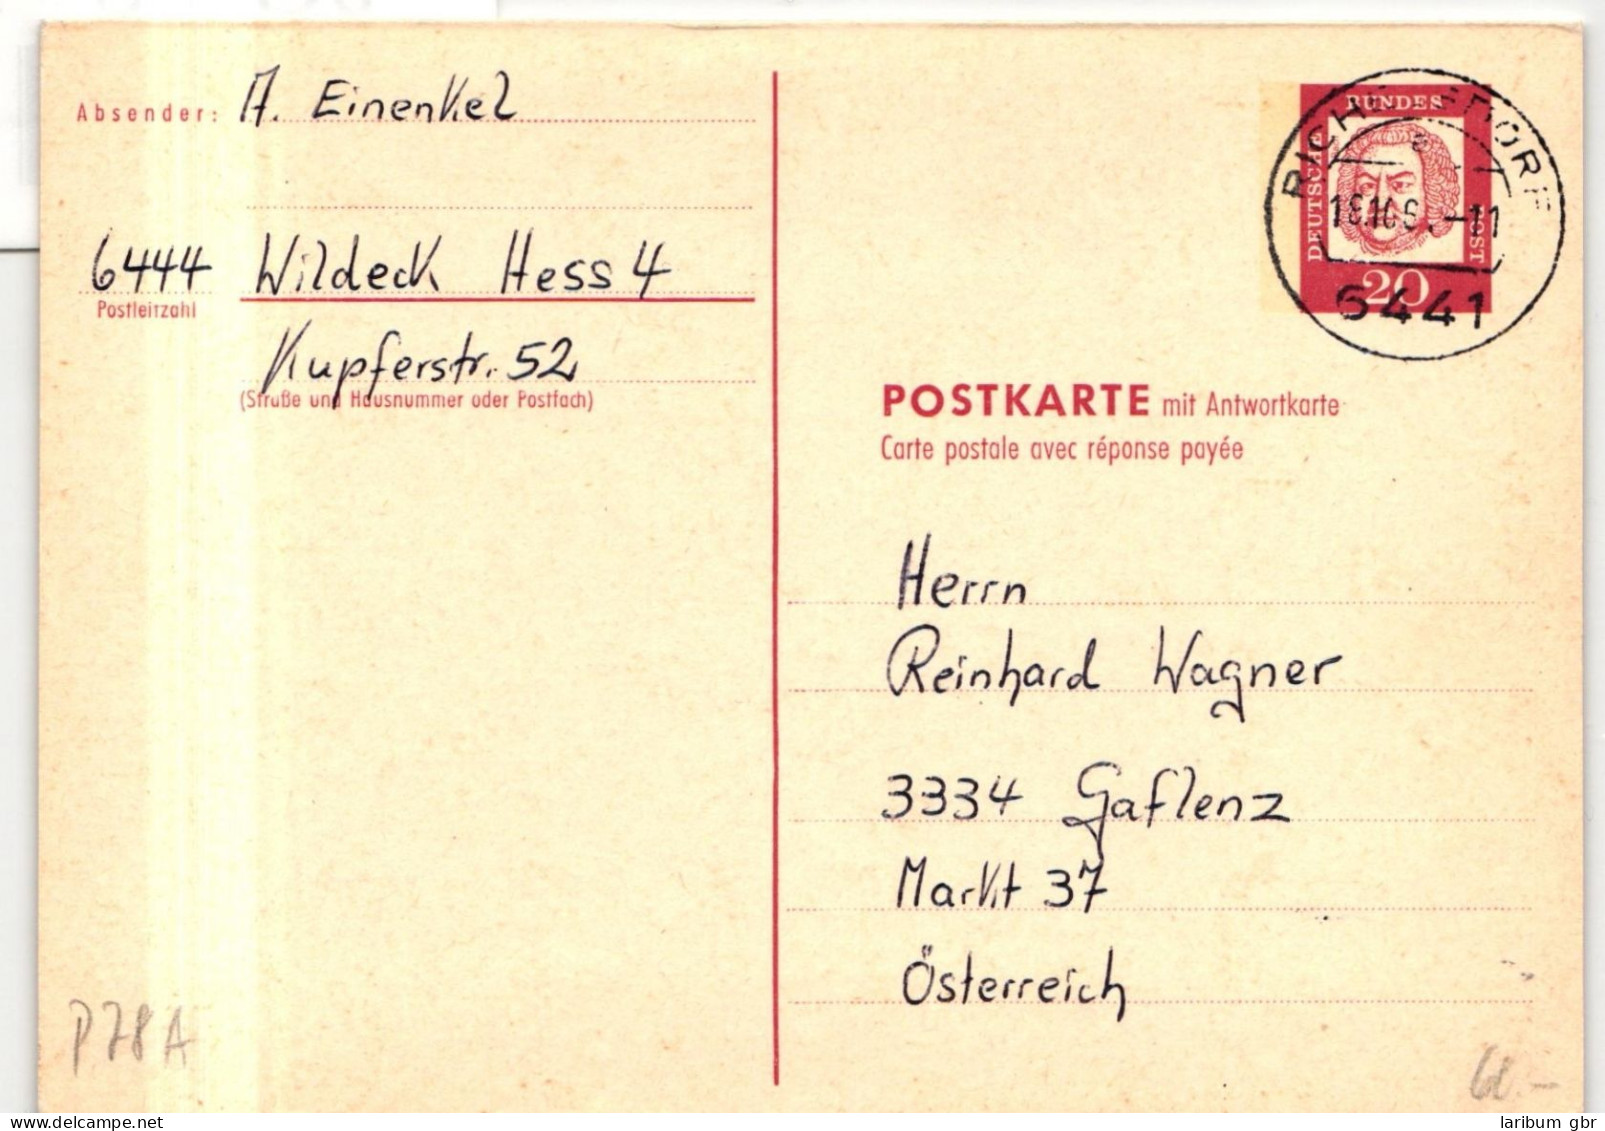 Absender: A. Einenkel
6444 Wildeck Hess 4
Postleitzahl
Kupferstr. 52
(Straße und Hausnummer oder Postfach)
DEUTSCHE
BUNDES
POST
20
6441
POSTKARTE mit Antwortkarte
Carte postale avec réponse payée
Herrn
Reinhard Wagner
3334 Gaflenz
Markt 37
Österreich
P 78 A
laribum gbr